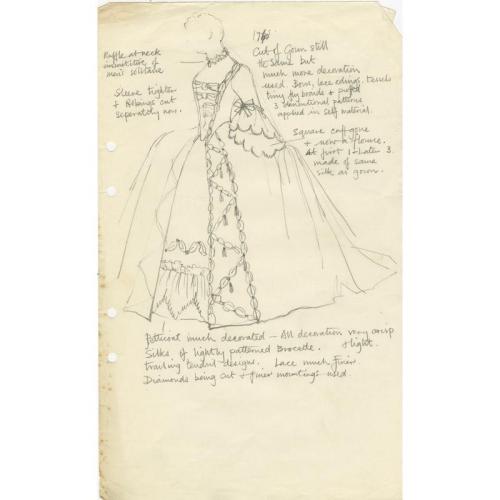 Ruffle at neck
immitative of
men's solitaire
Sleeve tighter
+ Robings cut
seperately now.
1760
Cut of Gown still
the same but
much more decoration
used. Bows, lace edings, tassels
tiny fly braids +
3 dimentional patterns
applied in self material.
Square cuff gone
+ now a flounce.
At first 1 - Later 3.
made of same
silk as gown.
Petticoat much decorated – All decoration very crisp
+ light.
Silks of lightly patterned Brocade.
trailing tendril designs. Lace much finer.
Diamonds being cut + finer mountings used.